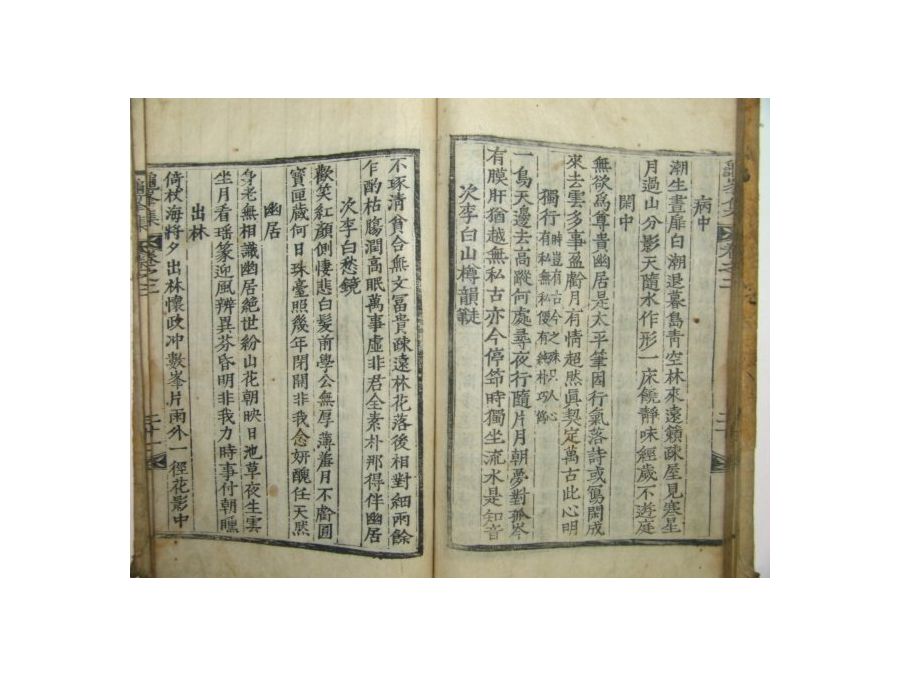 病中
潮生晝扉白潮退暮島靑空林來遠籟疎屋見寒星
月過山分影天隨水作形一床饒靜味經歲不遊庭
閑中
無欲爲尊貴幽居是太平筆因行氣落詩或寫閑成
來去雲多事盈虧月有情超然眞契定萬古此心明
獨行
一鳥天邊去高蹤何處尋夜行隨片月朝夢對孤岑
有膜肝猶越無私古亦今停笻時獨坐流水是知音
次李白山樽韻
不琢淸貧合無文冨貴疎遠林花落後相對細雨餘
乍酌枯膓潤高眠萬事虛非君全素朴那得伴幽居
次李白愁鏡
歡笑紅顏側悽悲白髮前學公無厚薄羞月不虧圓
寶匣藏何日珠臺照幾年閉開非我念妍醜任天然
幽居
身老無相識幽居絶世紛山花朝映日池草夜生雲
坐月看瑶篆迎風辨異芬昏明非我力時事付朝曛
出林
倚杖海將夕出林懷政冲數峯片雨外一徑花影中
卷之三